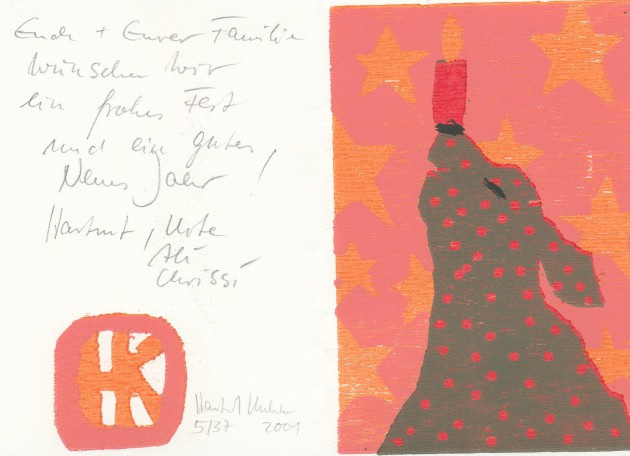 Euch + Eurer Familie
wünschen wir
ein frohes Fest
und ein gutes,
Neues Jahr!
Hartmut, Ute
Chrissi
K
5/37 2001